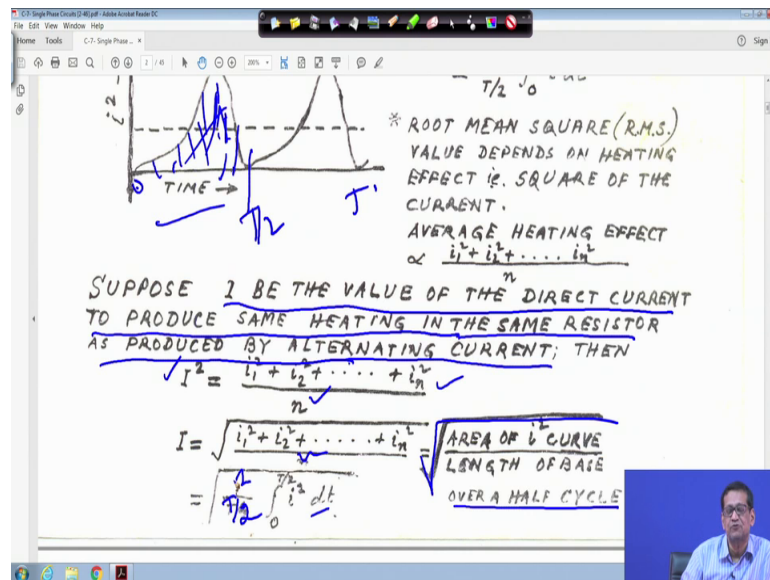 C-7- Single Phase Circuits [2-48].pdf - Adobe Acrobat Reader DC
File Edit View Window Help
Home Tools C-7- Single Phase ... ×
Sign
2 / 45 200%
i²
0 TIME → T/2 T
T/2 0
* ROOT MEAN SQUARE (R.M.S.)
VALUE DEPENDS ON HEATING
EFFECT ie. SQUARE OF THE
CURRENT.
AVERAGE HEATING EFFECT
∝ i₁² + i₂² + .... iₙ² / n
SUPPOSE I BE THE VALUE OF THE DIRECT CURRENT
TO PRODUCE SAME HEATING IN THE SAME RESISTOR
AS PRODUCED BY ALTERNATING CURRENT; THEN
I² = i₁² + i₂² + ..... + iₙ² / n
I = √ i₁² + i₂² + ...... + iₙ² / n = √ AREA OF i² CURVE / LENGTH OF BASE
OVER A HALF CYCLE
= √ 1 / T/2 ∫₀^T/2 i² dt